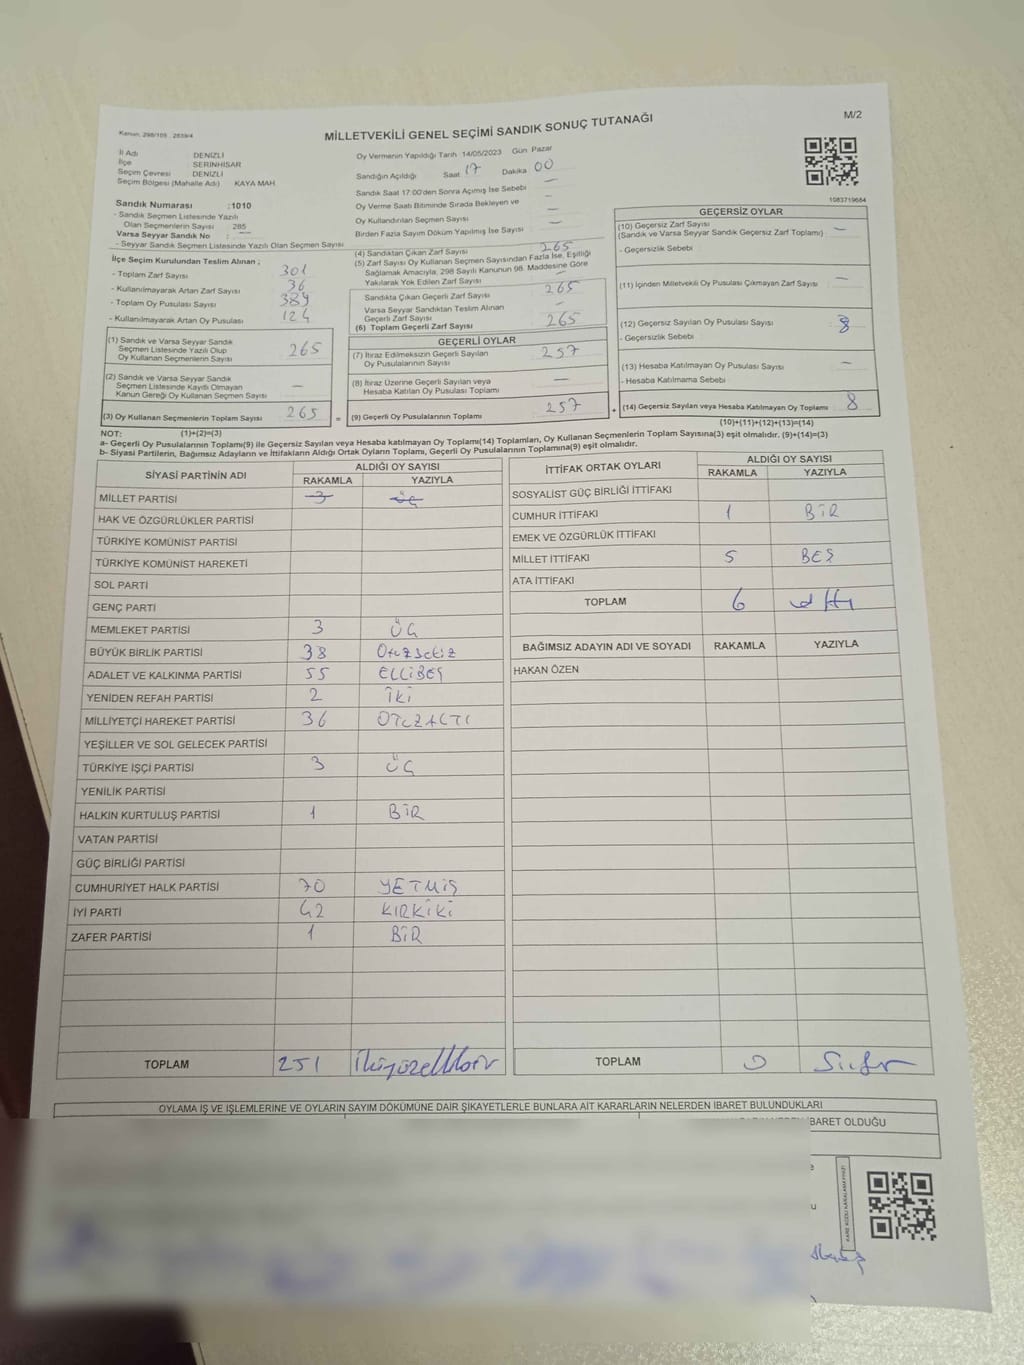 Kanun: 298/105 , 2839/4
MİLLETVEKİLİ GENEL SEÇİMİ SANDIK SONUÇ TUTANAĞI
M/2
İl Adı : DENİZLİ
İlçe : SERİNHİSAR
Seçim Çevresi : DENİZLİ
Seçim Bölgesi (Mahalle Adı) KAYA MAH.
Oy Vermenin Yapıldığı Tarih 14/05/2023 Gün Pazar
Sandığın Açıldığı Saat 17 Dakika 00
Sandık Saat 17:00'den Sonra Açımış İse Sebebi —
Oy Verme Saati Bitiminde Sırada Bekleyen ve
Oy Kullandırılan Seçmen Sayısı —
Birden Fazla Sayım Döküm Yapılmış İse Sayısı —
1083719684
Sandık Numarası : 1010
- Sandık Seçmen Listesinde Yazılı
Olan Seçmenlerin Sayısı : 285
Varsa Seyyar Sandık No : —
- Seyyar Sandık Seçmen Listesinde Yazılı Olan Seçmen Sayısı
İlçe Seçim Kurulundan Teslim Alınan ;
- Toplam Zarf Sayısı 301
- Kullanılmayarak Artan Zarf Sayısı 36
- Toplam Oy Pusulası Sayısı 389
- Kullanılmayarak Artan Oy Pusulası 124
(1) Sandık ve Varsa Seyyar Sandık
Seçmen Listesinde Yazılı Olup
Oy Kullanan Seçmenlerin Sayısı 265
(2) Sandık ve Varsa Seyyar Sandık
Seçmen Listesinde Kayıtlı Olmayan
Kanun Gereği Oy Kullanan Seçmen Sayısı —
(3) Oy Kullanan Seçmenlerin Toplam Sayısı 265 =
(1)+(2)=(3)
(4) Sandıktan Çıkan Zarf Sayısı 265
(5) Zarf Sayısı Oy Kullanan Seçmen Sayısından Fazla İse, Eşitliği
Sağlamak Amacıyla, 298 Sayılı Kanunun 98. Maddesine Göre
Yakılarak Yok Edilen Zarf Sayısı —
Sandıkta Çıkan Geçerli Zarf Sayısı 265
Varsa Seyyar Sandıktan Teslim Alınan
Geçerli Zarf Sayısı —
(6) Toplam Geçerli Zarf Sayısı 265
GEÇERLİ OYLAR
(7) İtiraz Edilmeksizin Geçerli Sayılan
Oy Pusulalarının Sayısı 257
(8) İtiraz Üzerine Geçerli Sayılan veya
Hesaba Katılan Oy Pusulası Toplamı —
(9) Geçerli Oy Pusulalarının Toplamı 257 +
GEÇERSİZ OYLAR
(10) Geçersiz Zarf Sayısı
(Sandık ve Varsa Seyyar Sandık Geçersiz Zarf Toplamı) —
- Geçersizlik Sebebi
(11) İçinden Milletvekili Oy Pusulası Çıkmayan Zarf Sayısı —
(12) Geçersiz Sayılan Oy Pusulası Sayısı : 8
- Geçersizlik Sebebi
(13) Hesaba Katılmayan Oy Pusulası Sayısı —
- Hesaba Katılmama Sebebi
(14) Geçersiz Sayılan veya Hesaba Katılmayan Oy Toplamı 8
(10)+(11)+(12)+(13)=(14)
NOT:
a- Geçerli Oy Pusulalarının Toplamı(9) ile Geçersiz Sayılan veya Hesaba katılmayan Oy Toplamı(14) Toplamları, Oy Kullanan Seçmenlerin Toplam Sayısına(3) eşit olmalıdır. (9)+(14)=(3)
b- Siyasi Partilerin, Bağımsız Adayların ve İttifakların Aldığı Ortak Oyların Toplamı, Geçerli Oy Pusulalarının Toplamına(9) eşit olmalıdır.
SİYASİ PARTİNİN ADI
ALDIĞI OY SAYISI
RAKAMLA YAZIYLA
MİLLET PARTİSİ 3 üç
HAK VE ÖZGÜRLÜKLER PARTİSİ
TÜRKİYE KOMÜNİST PARTİSİ
TÜRKİYE KOMÜNİST HAREKETİ
SOL PARTİ
GENÇ PARTİ
MEMLEKET PARTİSİ 3 ÜÇ
BÜYÜK BİRLİK PARTİSİ 38 Otuzsekiz
ADALET VE KALKINMA PARTİSİ 55 ELLİBEŞ
YENİDEN REFAH PARTİSİ 2 İKİ
MİLLİYETÇİ HAREKET PARTİSİ 36 OTUZALTI
YEŞİLLER VE SOL GELECEK PARTİSİ
TÜRKİYE İŞÇİ PARTİSİ 3 ÜÇ
YENİLİK PARTİSİ
HALKIN KURTULUŞ PARTİSİ 1 BİR
VATAN PARTİSİ
GÜÇ BİRLİĞİ PARTİSİ
CUMHURİYET HALK PARTİSİ 70 YETMİŞ
İYİ PARTİ 42 KIRKİKİ
ZAFER PARTİSİ 1 BİR
TOPLAM 251 İkiyüzellibir
İTTİFAK ORTAK OYLARI
ALDIĞI OY SAYISI
RAKAMLA YAZIYLA
SOSYALİST GÜÇ BİRLİĞİ İTTİFAKI
CUMHUR İTTİFAKI 1 BİR
EMEK VE ÖZGÜRLÜK İTTİFAKI
MİLLET İTTİFAKI 5 BEŞ
ATA İTTİFAKI
TOPLAM 6 altı
BAĞIMSIZ ADAYIN ADI VE SOYADI RAKAMLA YAZIYLA
HAKAN ÖZEN
TOPLAM 0 Sıfır
OYLAMA İŞ VE İŞLEMLERİNE VE OYLARIN SAYIM DÖKÜMÜNE DAİR ŞİKAYETLERLE BUNLARA AİT KARARLARIN NELERDEN İBARET BULUNDUKLARI
İBARET OLDUĞU
KARE KODU KARALAMAYINIZ!